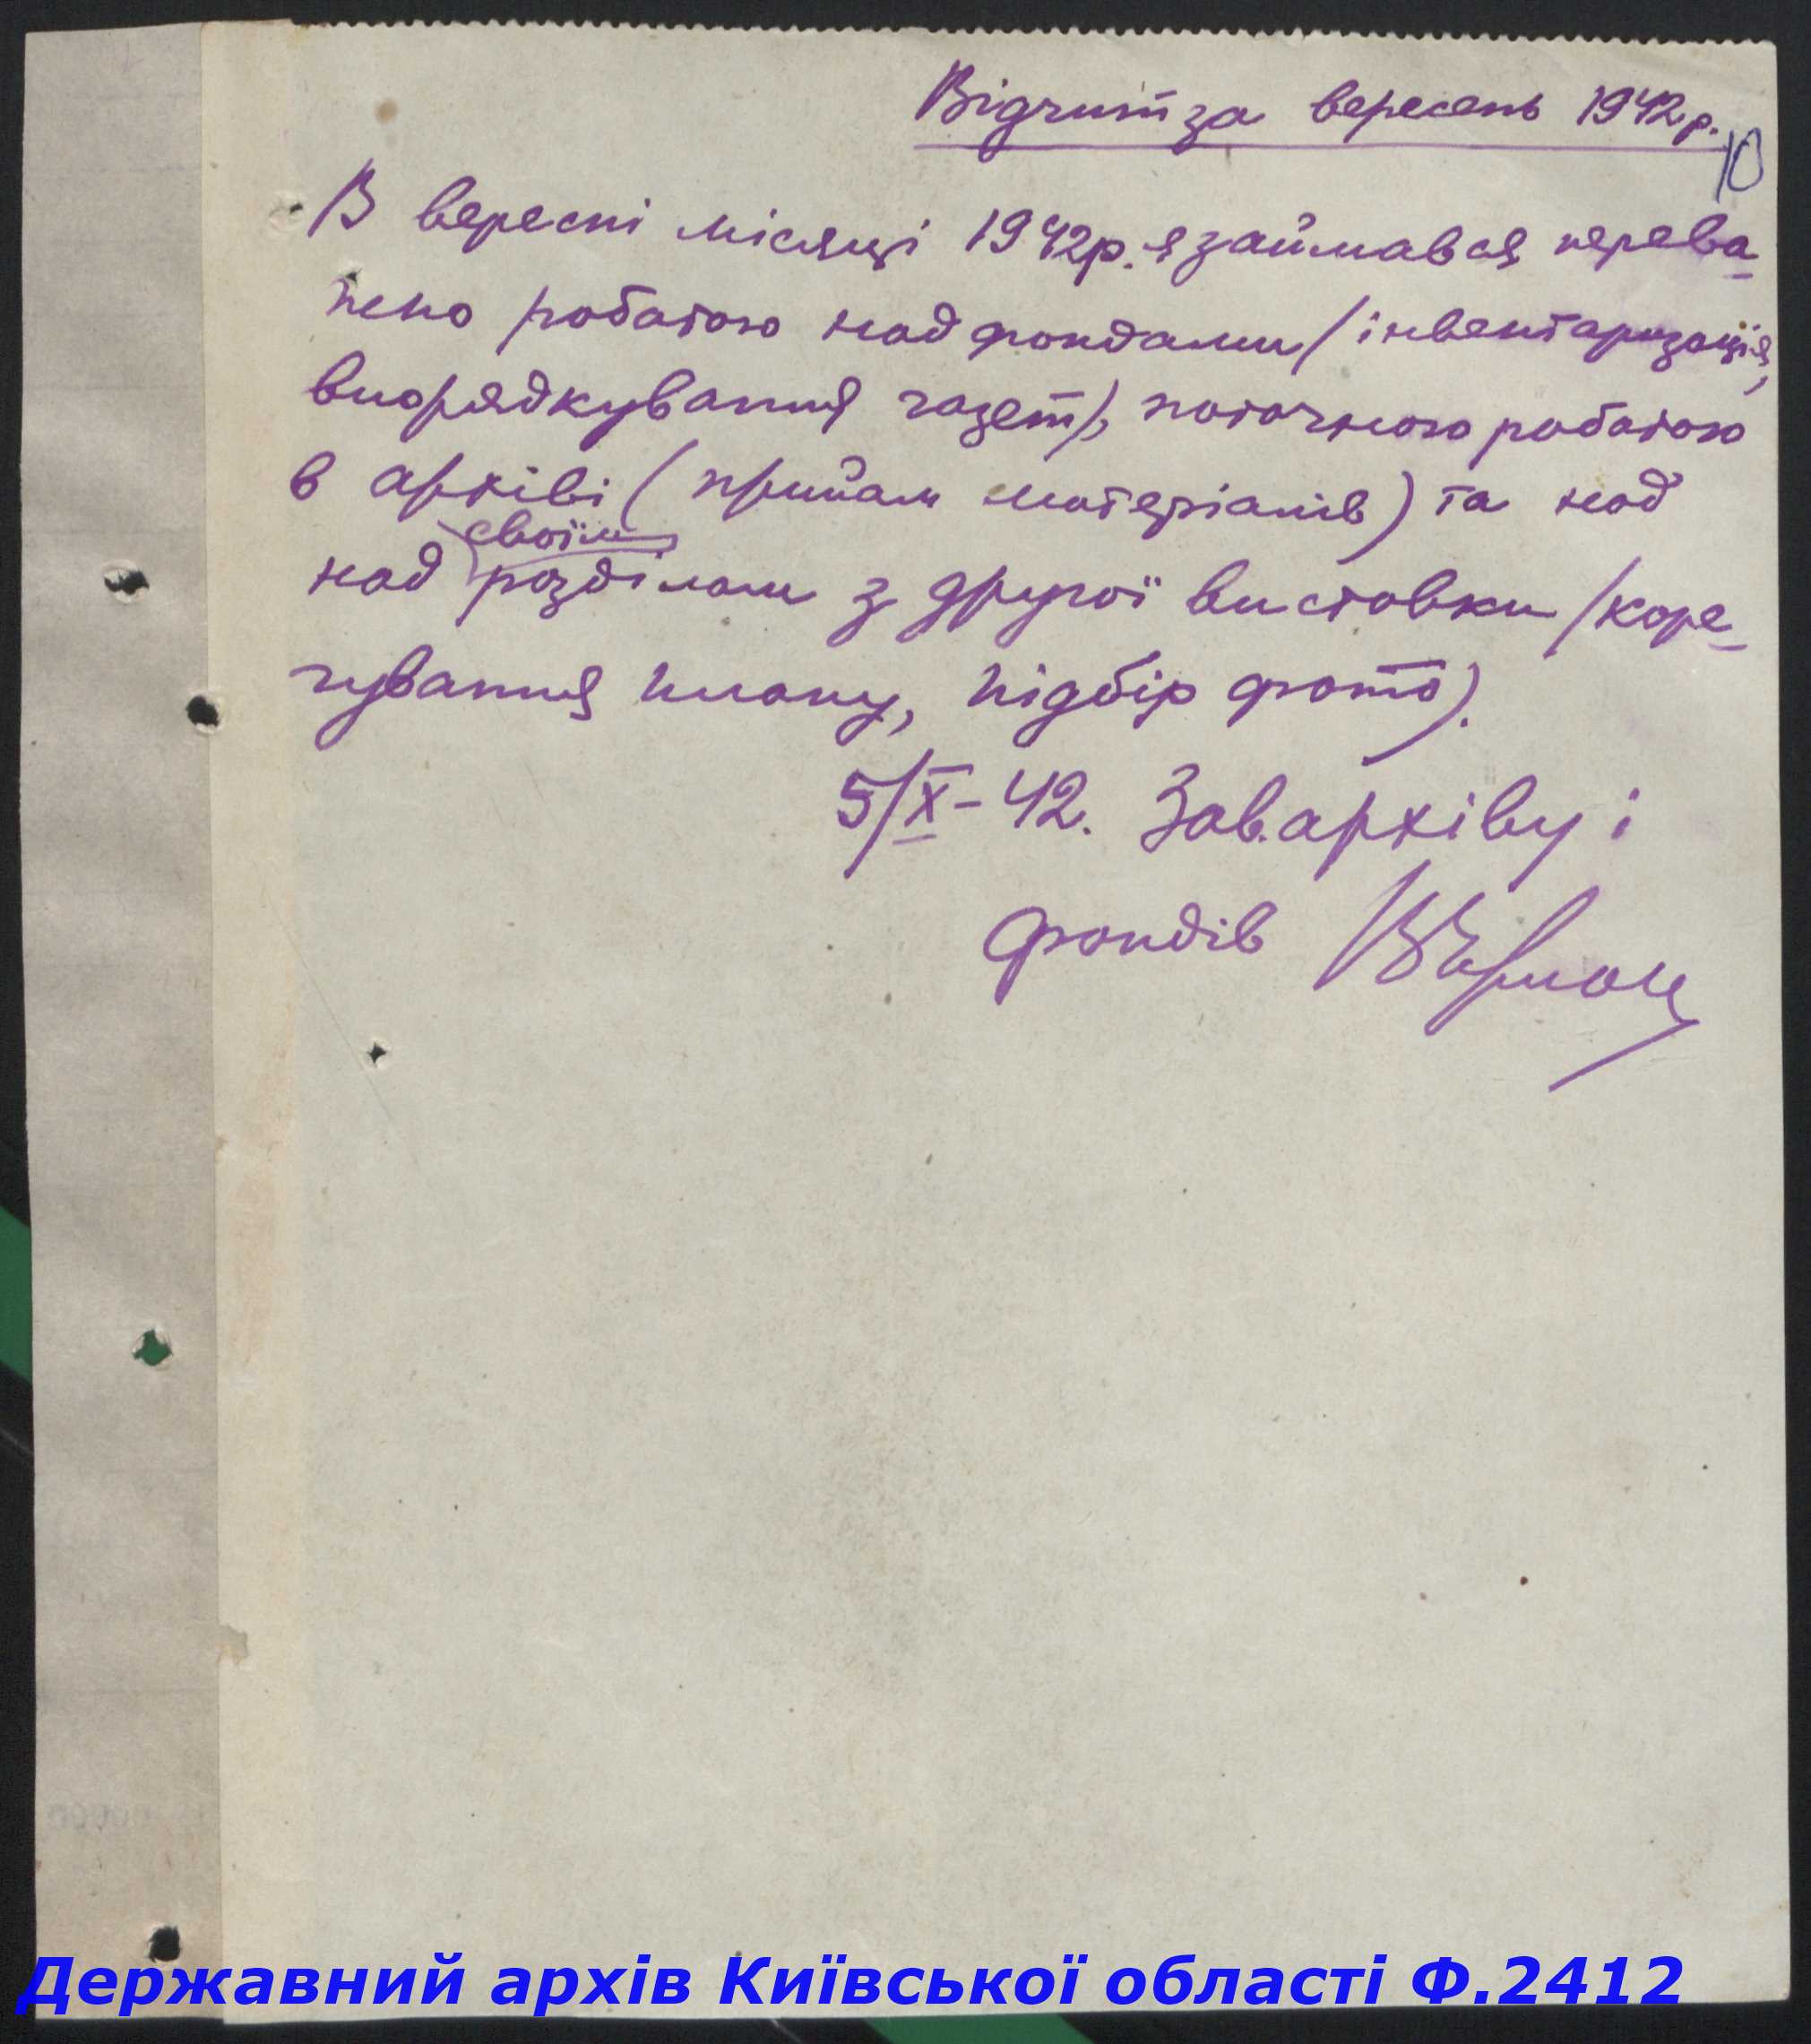 Відчит за вересень 1942 р.
10
В вересні місяці 1942 р. я займався перева-
жно роботою над фондами /інвентаризація,
впорядкування газет/, поточною роботою
в архіві (прийом матеріалів) та над
своїм
над розділом з другої виставки /коре-
гування плану, підбір фото).
5/X-42. Зав. архіву і
фондів
Державний архів Київської області Ф.2412